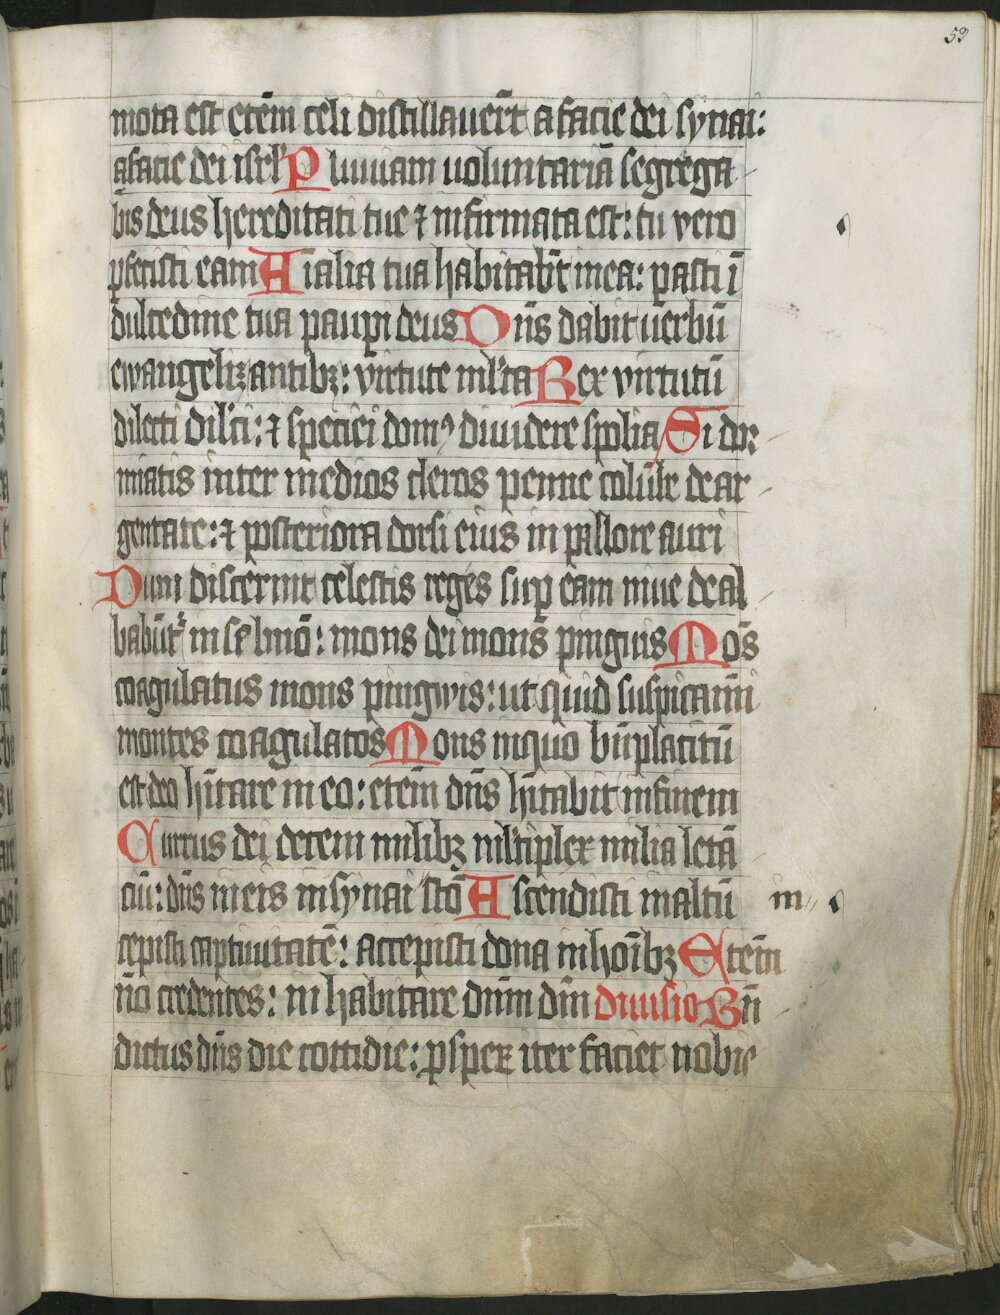 59
mota est etem̄ celi distillauer̄t a facie dei synai:
a facie dei isrl' Pluuiam uoluntariā segrega
bis deus hereditati tue ⁊ infirmata est: tu vero
ꝑfecisti eam Aīalia tua habitabūt in ea: pasti ī
dulcedine tua paupi deus Dn̄s dabit uerbū
ewangelizantibꝫ: virtute ml'ta Rex virtutū
dilecti dil'ci: ⁊ speciei domꝰ diuidere spolia Si dor
miatis inter medios cleros penne colūbe dear
gentate: ⁊ posteriora dorsi eius in pallore auri
Dum discernit celestis reges suꝑ eam niue deal
babūt᷑ in selmō: mons dei mons̄ pinguis Mōs
coagulatus mons pingwis: ut quid suspicamī
montes coagulatos Mons in quo bn̄placitū
est deo hītare in eo: etem̄ dn̄s hītabit in finem
Currus dei decem milibꝫ ml'tiplex milia letā
ciū: dn̄s in eis in synai sctō Ascendisti in altū
in
cepisti captiuitatē: accepisti dona in hoībꝫ Etem̄
nō credentes: in habitare dn̄m dm̄ diuisio Bn̄
dictus dn̄s die cottidie: ꝓsper iter faciet nobis